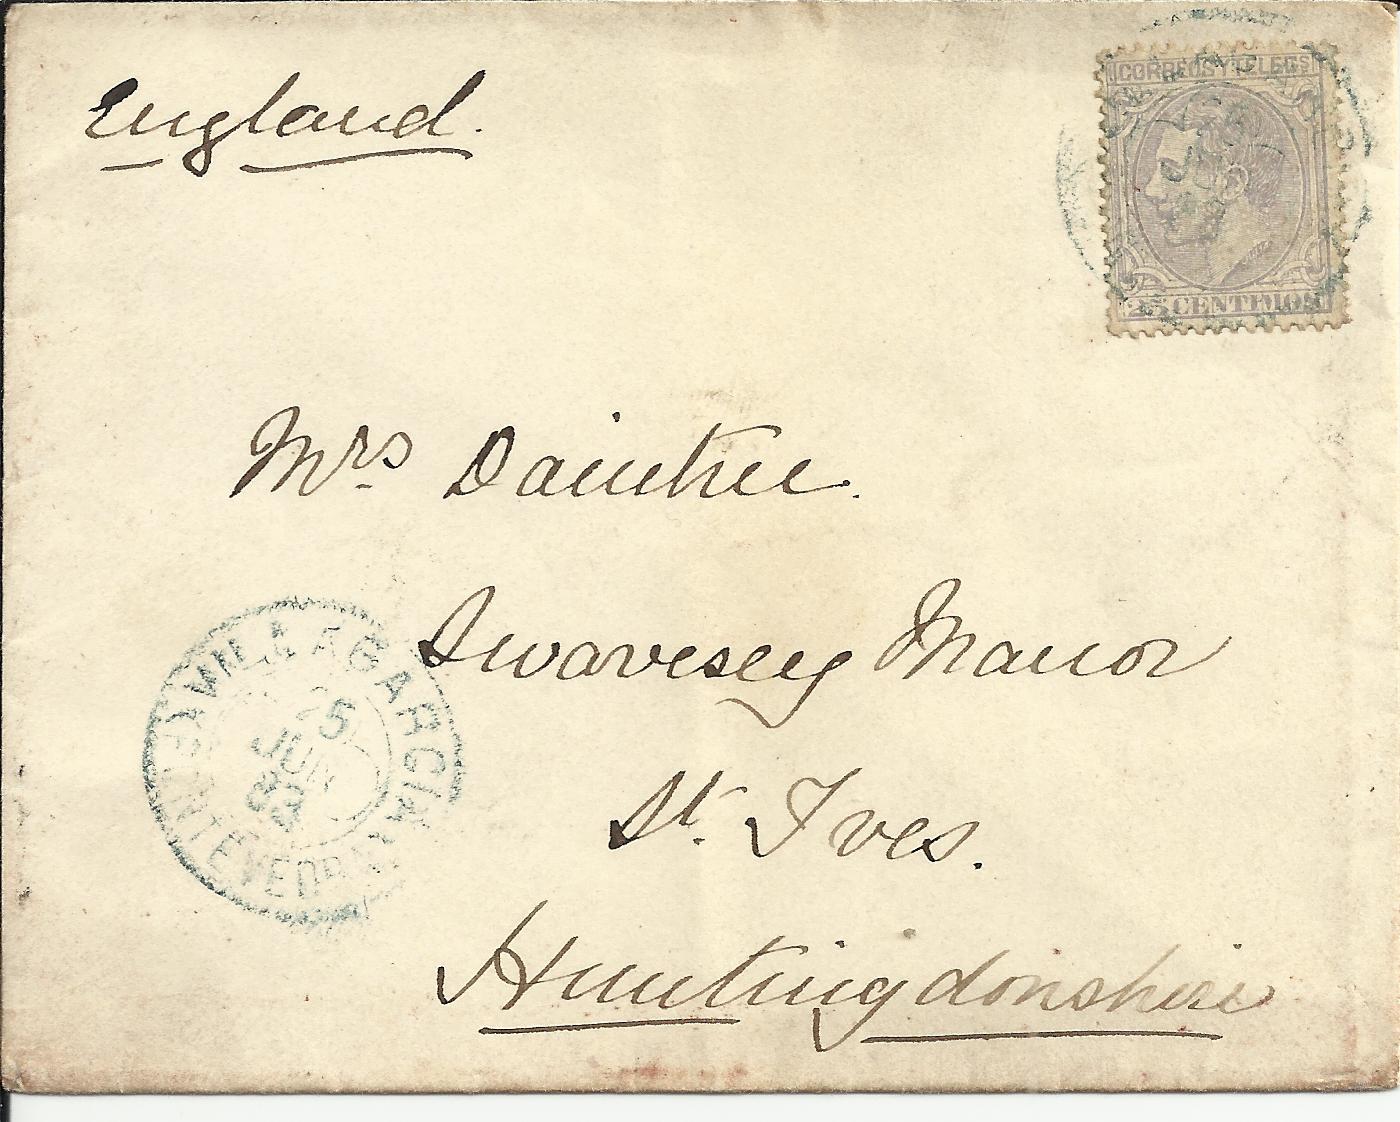 England.
CORREOS Y TELEGS
25 CENTIMOS
Mrs Daintree.
Swavesey Manor
St. Ives.
Huntingdonshire
VILLAGARCIA
25
JUN
83
PONTEVEDRA